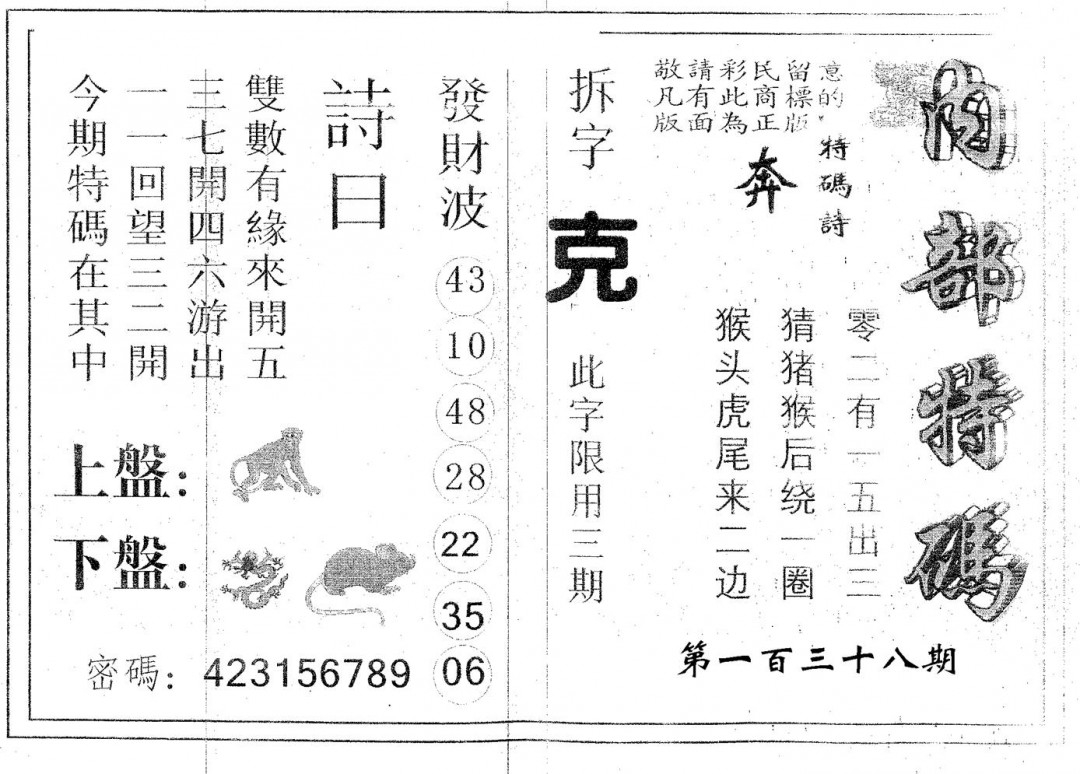 內部特碼
敬請彩民留意
凡有此商標的，
版面為正版
特碼詩
奔
零二有一五出三
猜猪猴后绕一圈
猴头虎尾来二边
第一百三十八期
拆字
克
此字限用三期
發財波
43
10
48
28
22
35
06
詩曰
雙數有緣來開五
三七開四六游出
一一回望三二開
今期特碼在其中
上盤：
下盤：
密碼：423156789